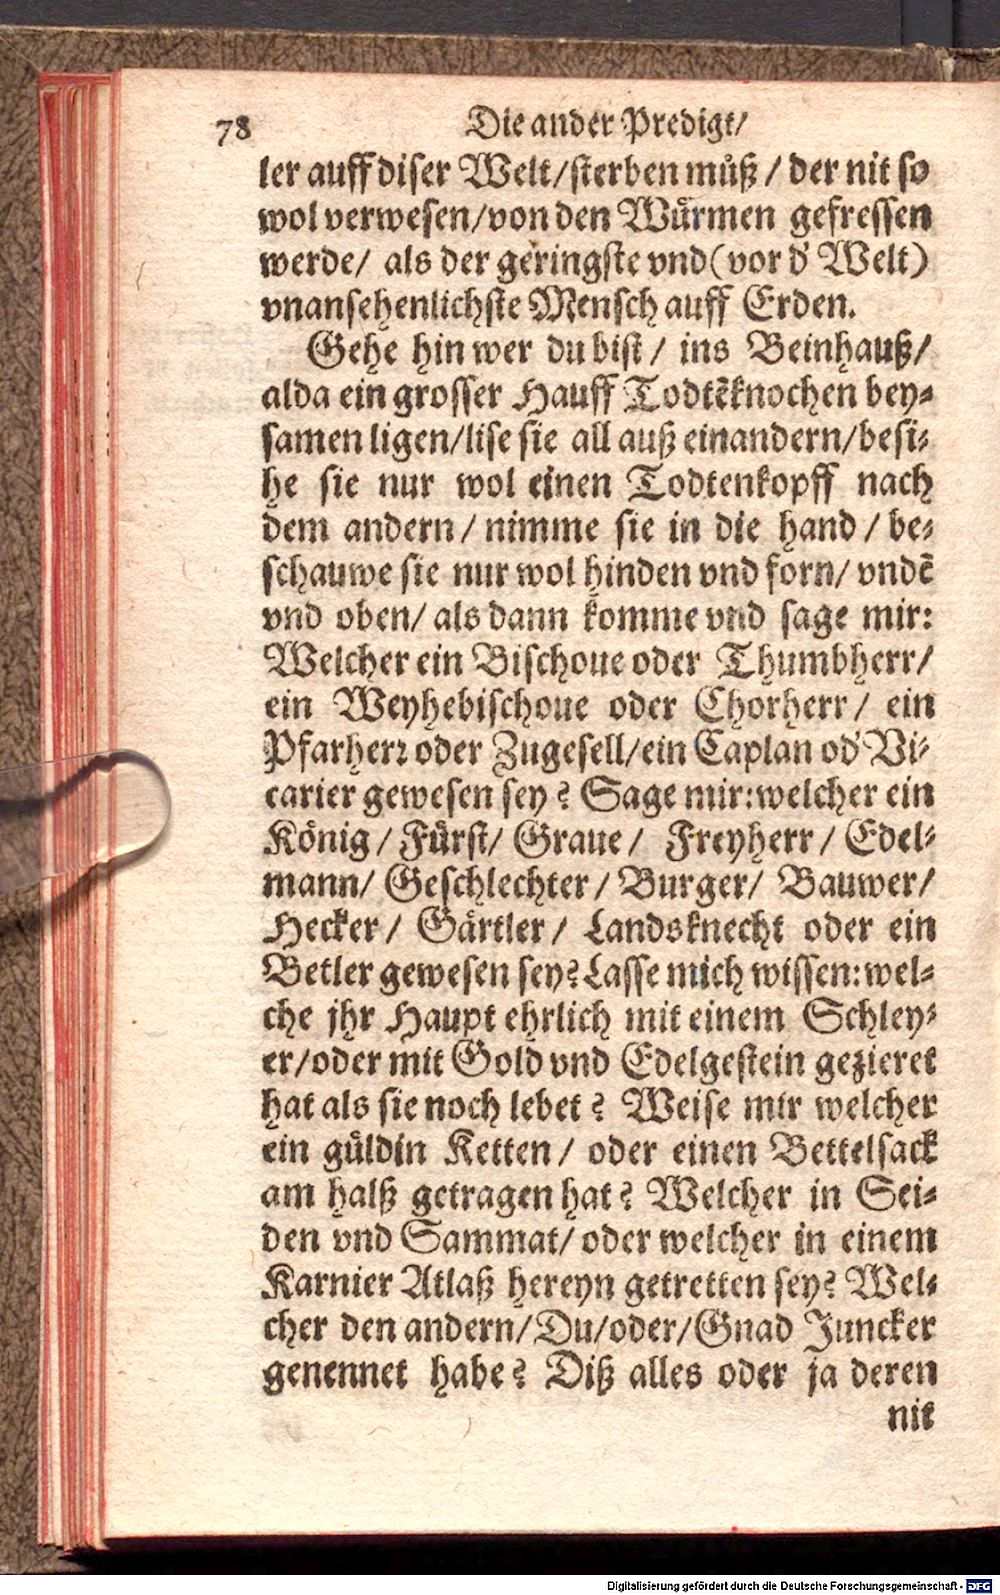 78 Die ander Predigt/
ler auff diser Welt/sterben muͦß/ der nit so
wol verwesen/von den Wuͤrmen gefressen
werde/ als der geringste vnd (vor d' Welt)
vnansehenlichste Mensch auff Erden.
Gehe hin wer du bist/ ins Beinhauß/
alda ein grosser Hauff Todtēknochen bey⸗
samen ligen/lise sie all auß einandern/besi⸗
he sie nur wol einen Todtenkopff nach
dem andern/ nimme sie in die hand/ be⸗
schauwe sie nur wol hinden vnd forn/ vndē
vnd oben/ als dann komme vnd sage mir:
Welcher ein Bischoue oder Thumbherr/
ein Weyhebischoue oder Chorherr/ ein
Pfarherr oder Zugesell/ein Caplan od' Vi⸗
carier gewesen sey? Sage mir:welcher ein
Koͤnig/ Fuͤrst/ Graue/ Freyherr/ Edel⸗
mann/ Geschlechter/ Burger/ Bauwer/
Hecker/ Gaͤrtler/ Landsknecht oder ein
Betler gewesen sey? Lasse mich wissen:wel⸗
che jhr Haupt ehrlich mit einem Schley⸗
er/oder mit Gold vnd Edelgestein gezieret
hat als sie noch lebet? Weise mir welcher
ein guͤldin Ketten/ oder einen Bettelsack
am halß getragen hat? Welcher in Sei⸗
den vnd Sammat/ oder welcher in einem
Karnier Atlaß hereyn getretten sey? Wel⸗
cher den andern/Du/oder/Gnad Juncker
genennet habe? Diß alles oder ja deren
nit
Digitalisierung gefördert durch die Deutsche Forschungsgemeinschaft - DFG